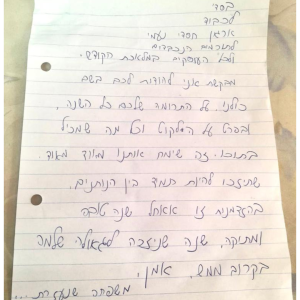 בסד
לכבוד
ארגון חסדי נעמי
לתורמים הנכבדים
ולכל העוסקים במלאכת הקודש,
מבקשת אני להודות לכם בשם
כולנו, על התרומה שלכם כל השנה,
ובפרט על המלקוט וכל מה שמכיל
בתוכו. זה שימח אותנו מאוד מאוד.
שתזכו להיות תמיד בין הנותנים.
בהזדמנות זו אאחל שנה טובה
ומתוקה, שנה שניזכה לגאולה שלמה
בקרוב ממש, אמן.
משפחה שנעזרת...